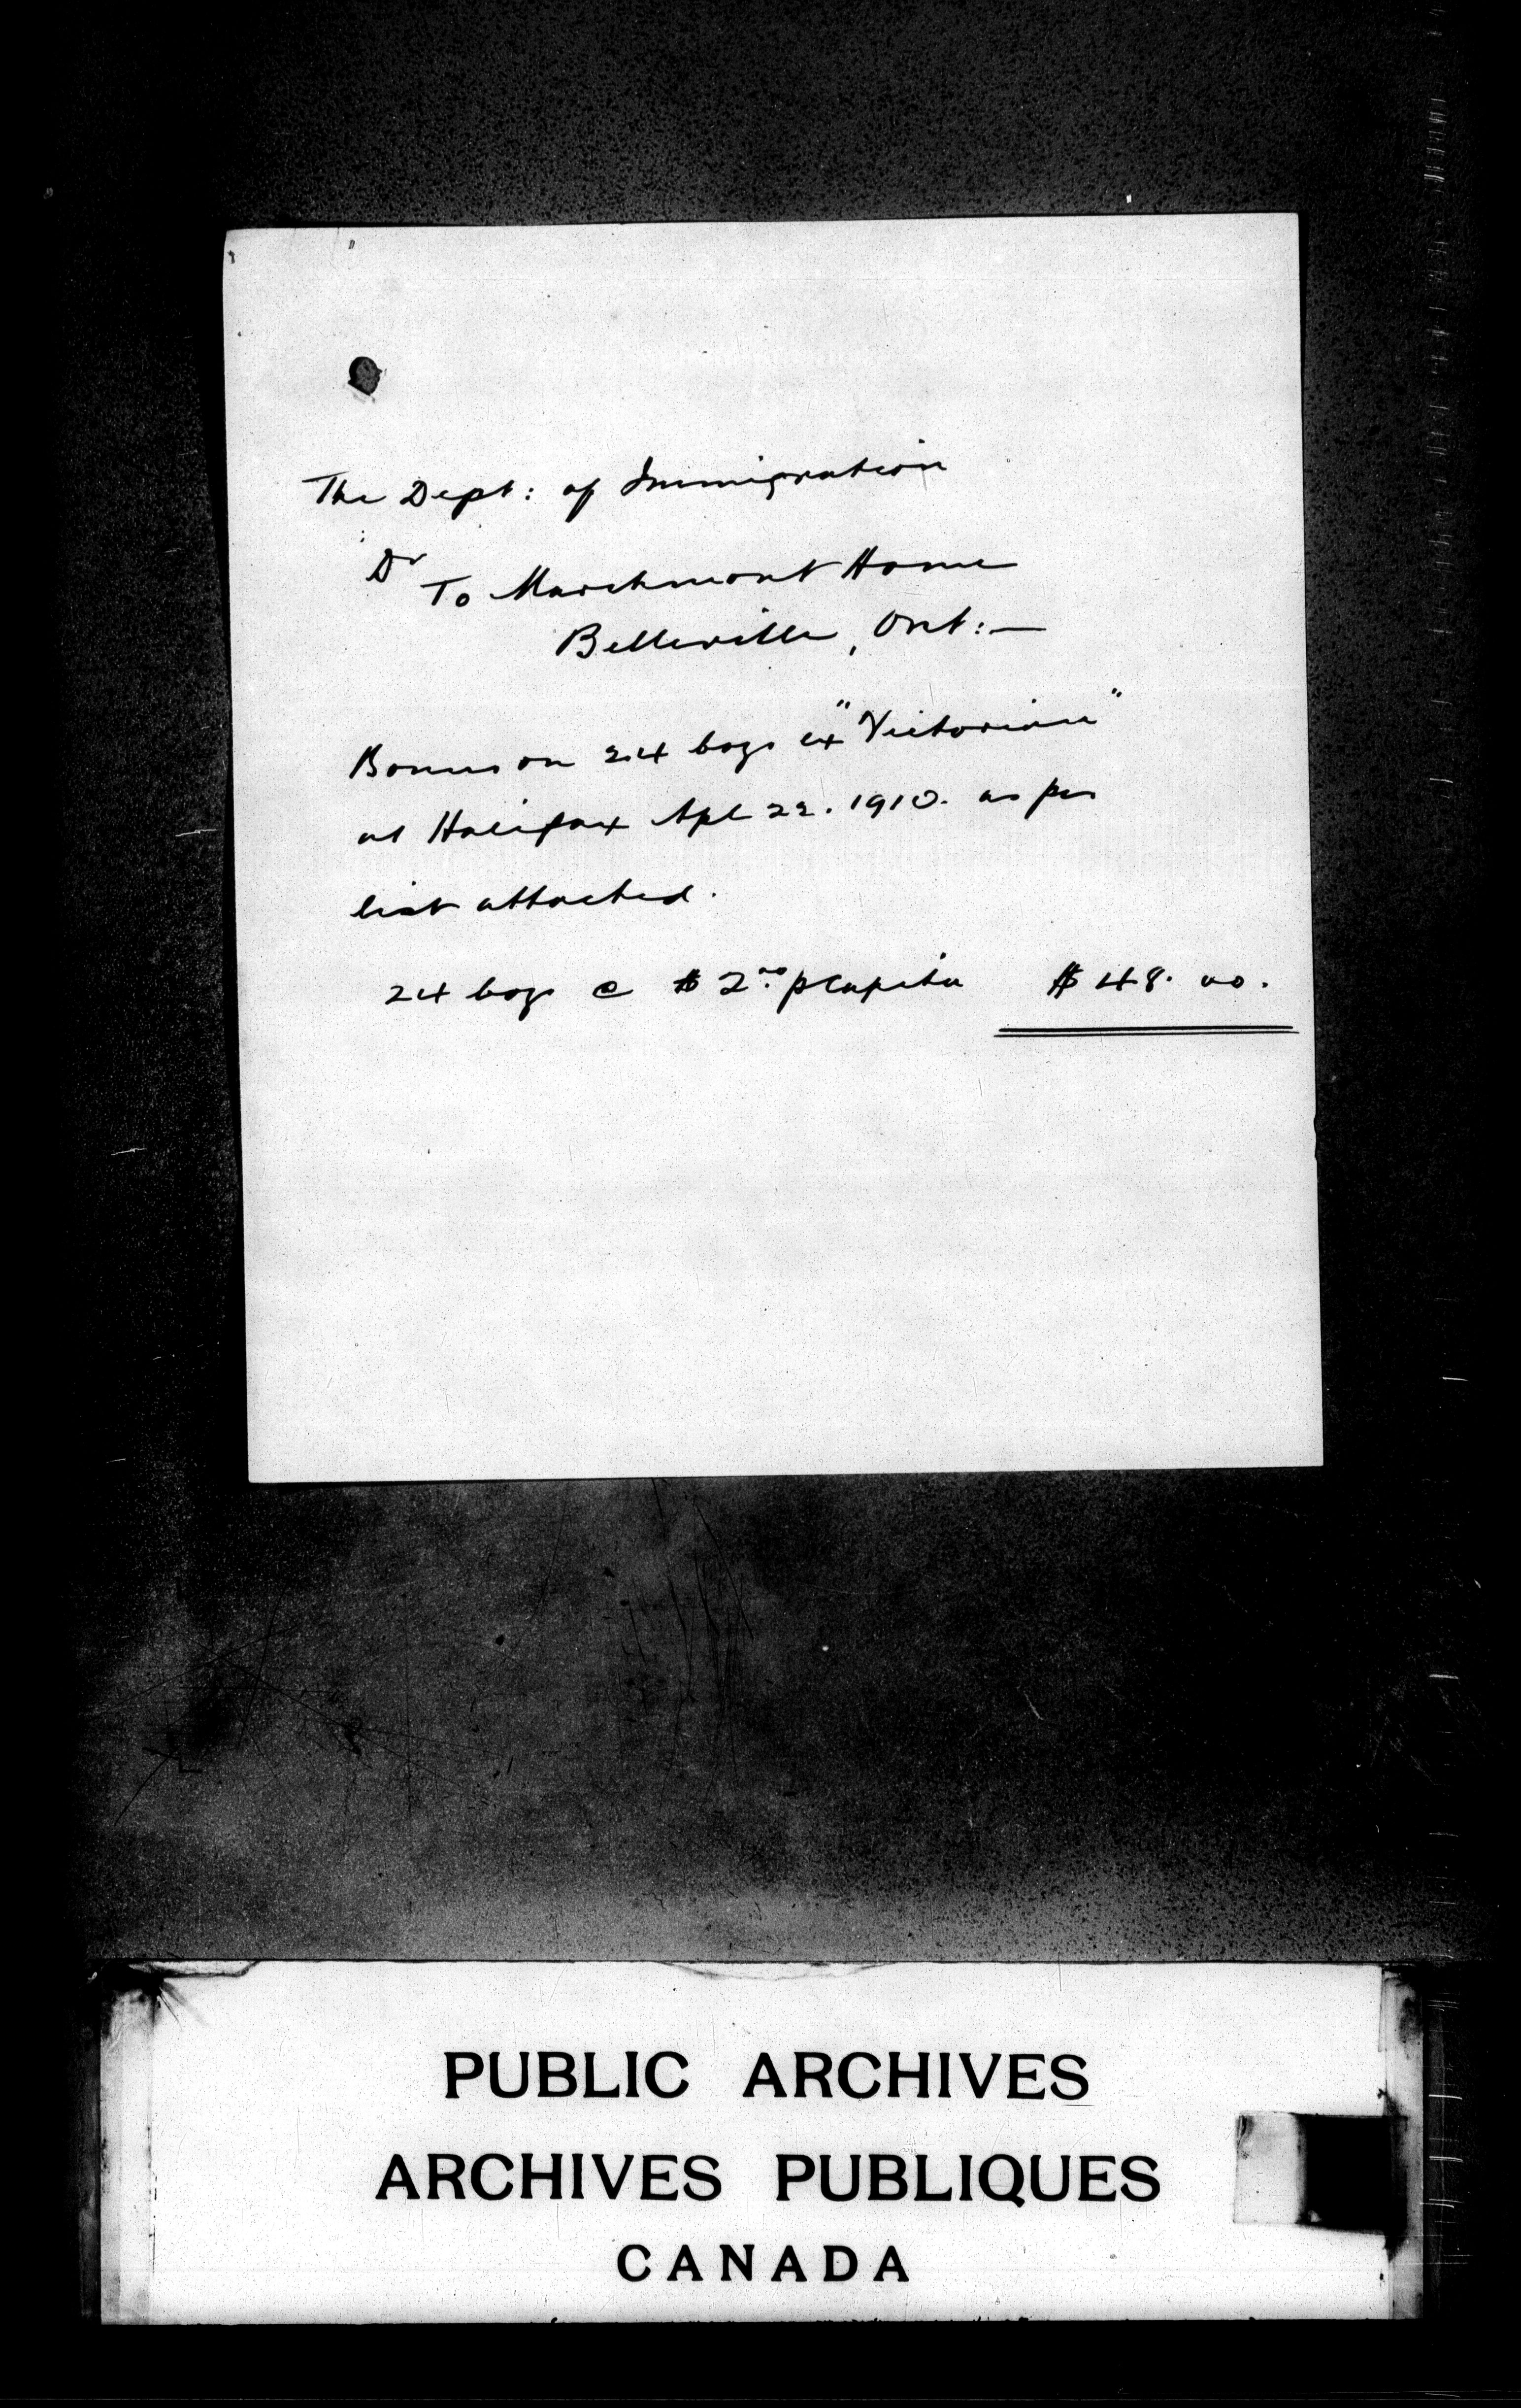 The Dept: of Immigration
Dr To Marchmont Home
Belleville, Ont:—
Bonus on 24 boys ex "Victorian"
at Halifax Apl 22. 1910. as per
list attached.
24 boys @ $2.00 p Capita $48.00.
PUBLIC ARCHIVES
ARCHIVES PUBLIQUES
CANADA